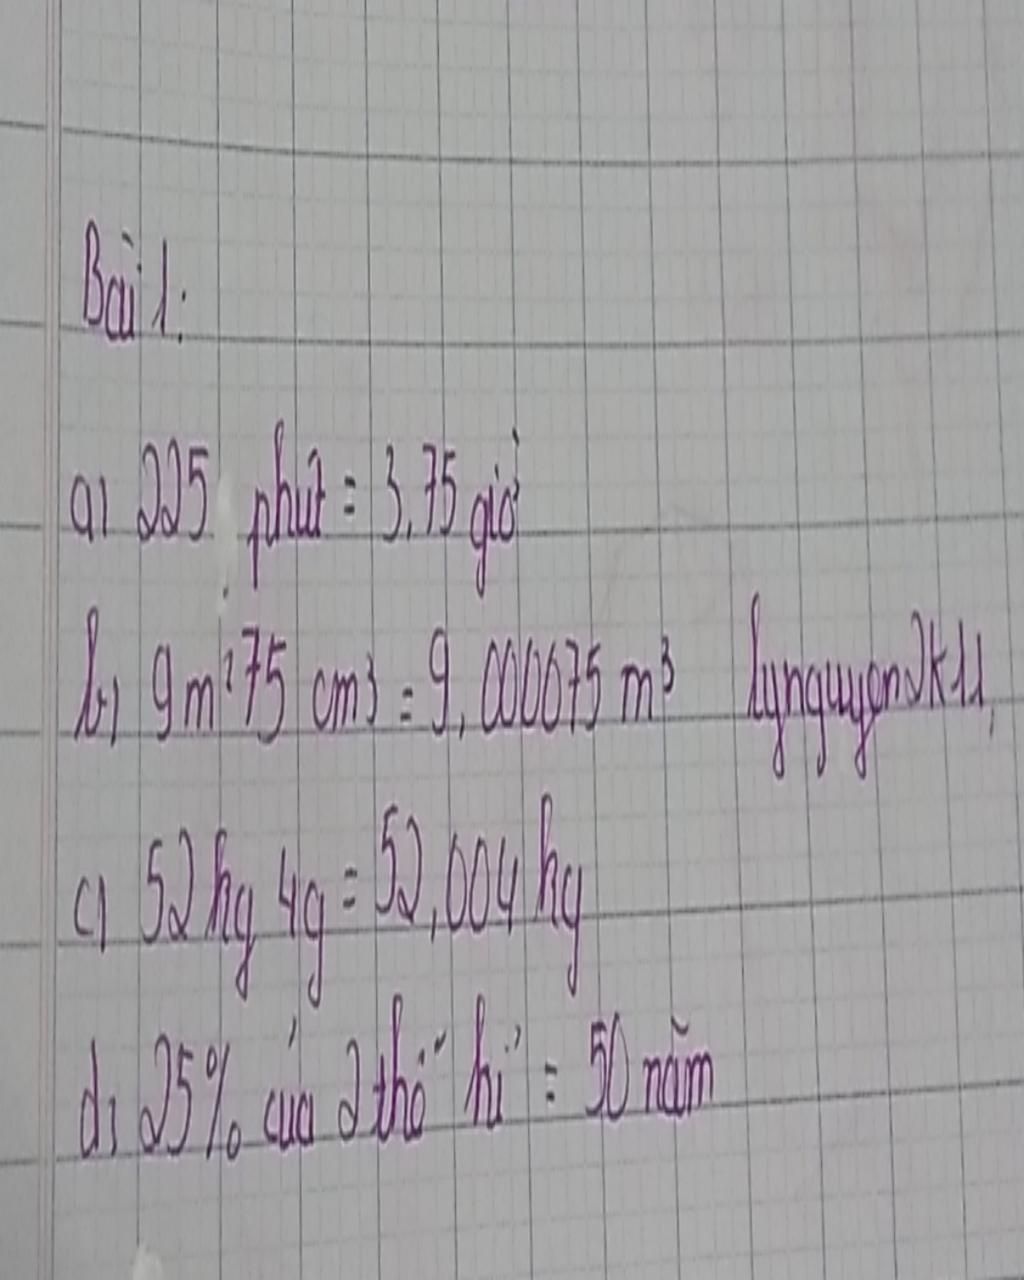 Bài 1:
a) 225 phút = 3,75 giờ
b) 9m³75 cm³ = 9,000075 m³ lynguyen2k11,
c) 52kg 4g = 52,004 kg
d) 25% của 2 thế kỉ = 50 năm